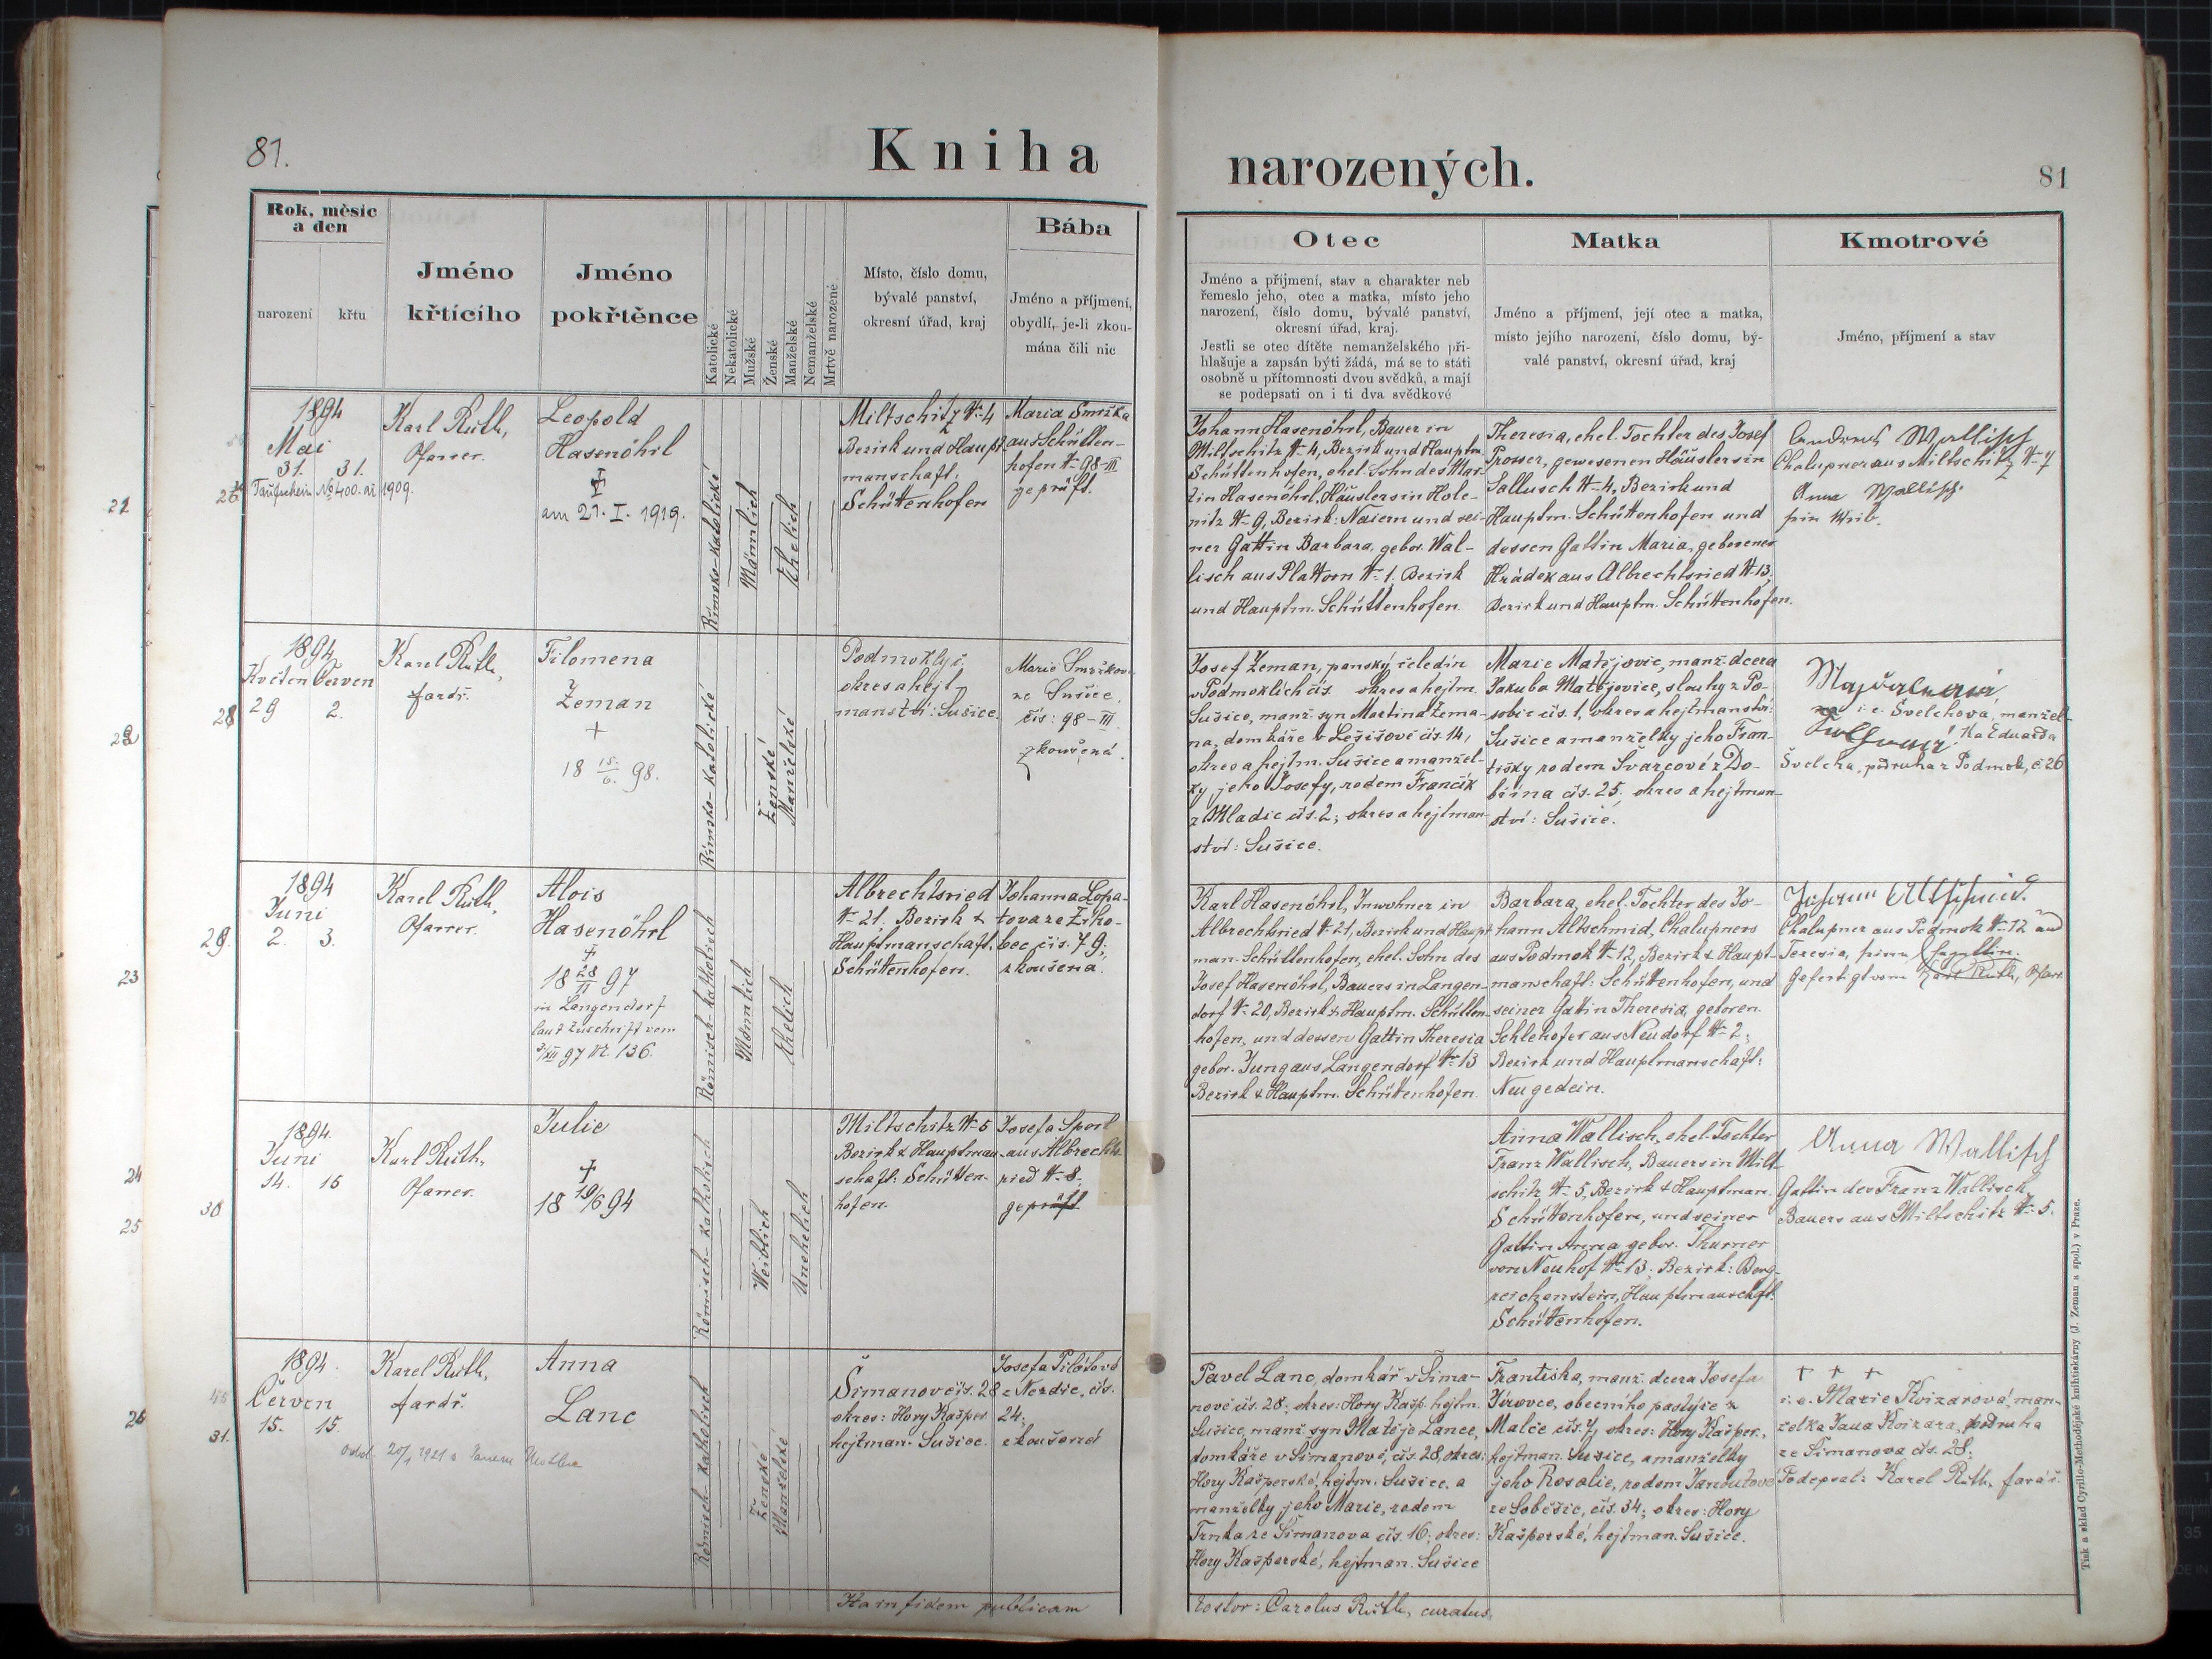 81.
Kniha
narozených.
81
Rok, měsíc
a den
narození
křtu
Jméno
křtícího
Jméno
pokřtěnce
Katolické
Nekatolické
Mužské
Ženské
Manželské
Nemanželské
Mrtvě narozené
Místo, číslo domu,
bývalé panství,
okresní úřad, kraj
Bába
Jméno a příjmení,
obydlí, je-li zkou-
mána čili nic
Otec
Jméno a příjmení, stav a charakter neb
řemeslo jeho, otec a matka, místo jeho
narození, číslo domu, bývalé panství,
okresní úřad, kraj.
Jestli se otec dítěte nemanželského při-
hlašuje a zapsán býti žádá, má se to státi
osobně u přítomnosti dvou svědků, a mají
se podepsati on i ti dva svědkové
Matka
Jméno a příjmení, její otec a matka,
místo jejího narození, číslo domu, bý-
valé panství, okresní úřad, kraj
Kmotrové
Jméno, příjmení a stav
1894
Mai
31. 31.
Taufschein No 400. ai 1909.
Karl Ruth,
Pfarrer.
Leopold
Hasenöhrl
†
am 21. I. 1919.
Římsko-katolické
Männlich
Ehelich
Miltschitz N-4
Bezirk und Haupt-
manschaft:
Schüttenhofen
Maria Smržka
aus Schütten-
hofen N-98-III
geprüft.
Johann Hasenöhrl, Bauer in
Miltschitz N-4, Bezirk und Hauptm.
Schüttenhofen, ehel. Sohn des Mar-
tin Hasenöhrl, Häuslers in Hole-
nitz N-9, Bezirk: Naiern und sei-
ner Gattin Barbara, gebor. Wal-
lisch aus Plattorn N-1, Bezirk
und Hauptm. Schüttenhofen.
Theresia, ehel. Tochter des Josef
Prosser, gewesenen Häuslers in
Sallusch N-4, Bezirk und
Hauptm. Schüttenhofen und
dessen Gattin Maria, geborener
Hrádek aus Albrechtsried N-13,
Bezirk und Hauptm. Schüttenhofen.
Andreas Wallisch
Chalupner aus Miltschitz N-7
Anna Wallisch
sein Weib.
1894
Květen Červen
29 2.
Karel Ruth,
farář.
Filomena
Zeman
+
18 15./6. 98.
Římsko-katolické
Ženské
Manželské
Podmokly č.
okres a hejt-
manství: Sušice.
Marie Smržkova
ze Sušice,
čís: 98-III
zkoušená.
Josef Zeman, panský čeledín
v Podmoklích čís. okres a hejtm.
Sušice, manž. syn Martina Zema-
na, domkáře v Lešišově čís. 14,
okres a hejtm. Sušice a manžel-
ky jeho Josefy, rodem Frančík
z Mladic čís. 2; okres a hejtman-
ství: Sušice.
Marie Matějovic, manž. dcera
Jakuba Matějovice, slouhy z Po-
sobic čís. 1, okres a hejtmanství:
Sušice a manželky jeho Fran-
tišky rodem Švarcové z Do-
bšína čís. 25, okres a hejtman-
ství: Sušice.
i. e. Švelchova, manžel-
ka Eduarda
Švelcha, podruha z Podmok, č. 26
1894
Juni
2. 3.
Karel Ruth,
Pfarrer.
Alois
Hasenöhrl
†
18 28/11 97
in Langendorf
laut Zuschrift vom
3/XII 97 Nr. 136.
Römisch-katholisch
Männlich
Ehelich
Albrechtsried
N-21, Bezirk &
Hauptmanschaft.
Schüttenhofen.
Johanna Lopa-
tova ze Žiho-
bec čís. 79,
zkoušená.
Karl Hasenöhrl, Inwohner in
Albrechtsried N-21, Bezirk und Haupt-
man. Schüttenhofen, ehel. Sohn des
Josef Hasenöhrl, Bauers in Langen-
dorf N-20, Bezirk & Hauptm. Schütten-
hofen, und dessen Gattin Theresia
gebor. Jung aus Langendorf N-13
Bezirk & Hauptm. Schüttenhofen.
Barbara, ehel. Tochter des Jo-
hann Altschmid, Chalupners
aus Podmok N-12, Bezirk & Haupt-
manschaft: Schüttenhofen, und
seiner Gattin Theresia, geboren.
Schlehofer aus Neudorf N-2;
Bezirk und Hauptmanschaft:
Neugedein.
Johann Altschmid.
Chalupner aus Podmok N-12 und
Teresia, seine Gattin.
Gefertigt vom Karl Ruth, Pfarr.
1894.
Juni
14. 15
Karl Ruth,
Pfarrer.
Julie
†
18 19/6 94
Römisch-katholisch
Weiblich
Unehelich
Miltschitz N-5
Bezirk & Hauptman-
schaft: Schütten-
hofen.
Josefa Sporl
aus Albrechts-
ried N-8.
geprüft
Anna Wallisch, ehel. Tochter
Franz Wallisch, Bauers in Milt-
schitz N-5, Bezirk & Hauptman.
Schüttenhofen, und seiner
Gattin Anna gebor. Thurner
von Neuhof N-13, Bezirk: Berg-
reichenstein, Hauptmanschaft:
Schüttenhofen.
Anna Wallisch
Gattin des Franz Wallisch,
Bauers aus Miltschitz N-5.
1894.
Červen
15. 15.
Karel Ruth,
farář.
Anna
Lanc
Römisch-katholisch
Ženské
Manželské
Šimanov čís. 28
okres: Hory Kašper.
hejtman. Sušice.
Josefa Pilátová
z Nezdic, čís.
24,
zkoušená
Pavel Lanc, domkář v Šima-
nově čís. 28, okres: Hory Kašp. hejtm.
Sušice, manž. syn Matěje Lance,
domkáře v Šimanově, čís. 28, okres:
Hory Kašperské, hejtm. Sušice, a
manželky jeho Marie, rodem
Trnka ze Šimanova čís. 16; okres:
Hory Kašperské, hejtman. Sušice
Františka, manž. dcera Josefa
Jírovce, obecního pastýře z
Malče čís. 7, okres: Hory Kašper.,
hejtman. Sušice, a manželky
jeho Rosalie, rodem Janoutové
ze Soběšic, čís. 34; okres: Hory
Kašperské, hejtman. Sušice.
† † †
i. e. Marie Kvizarová, man-
želka Jana Kvizara, podruha
ze Šimanova čís. 28;
Podepsal: Karel Ruth, farář.
Ita in fidem publicam
testor: Carolus Ruth, curatus.
Tisk a sklad Cyrillo-Methodějské knihtiskárny (J. Zeman a spol.) v Praze.